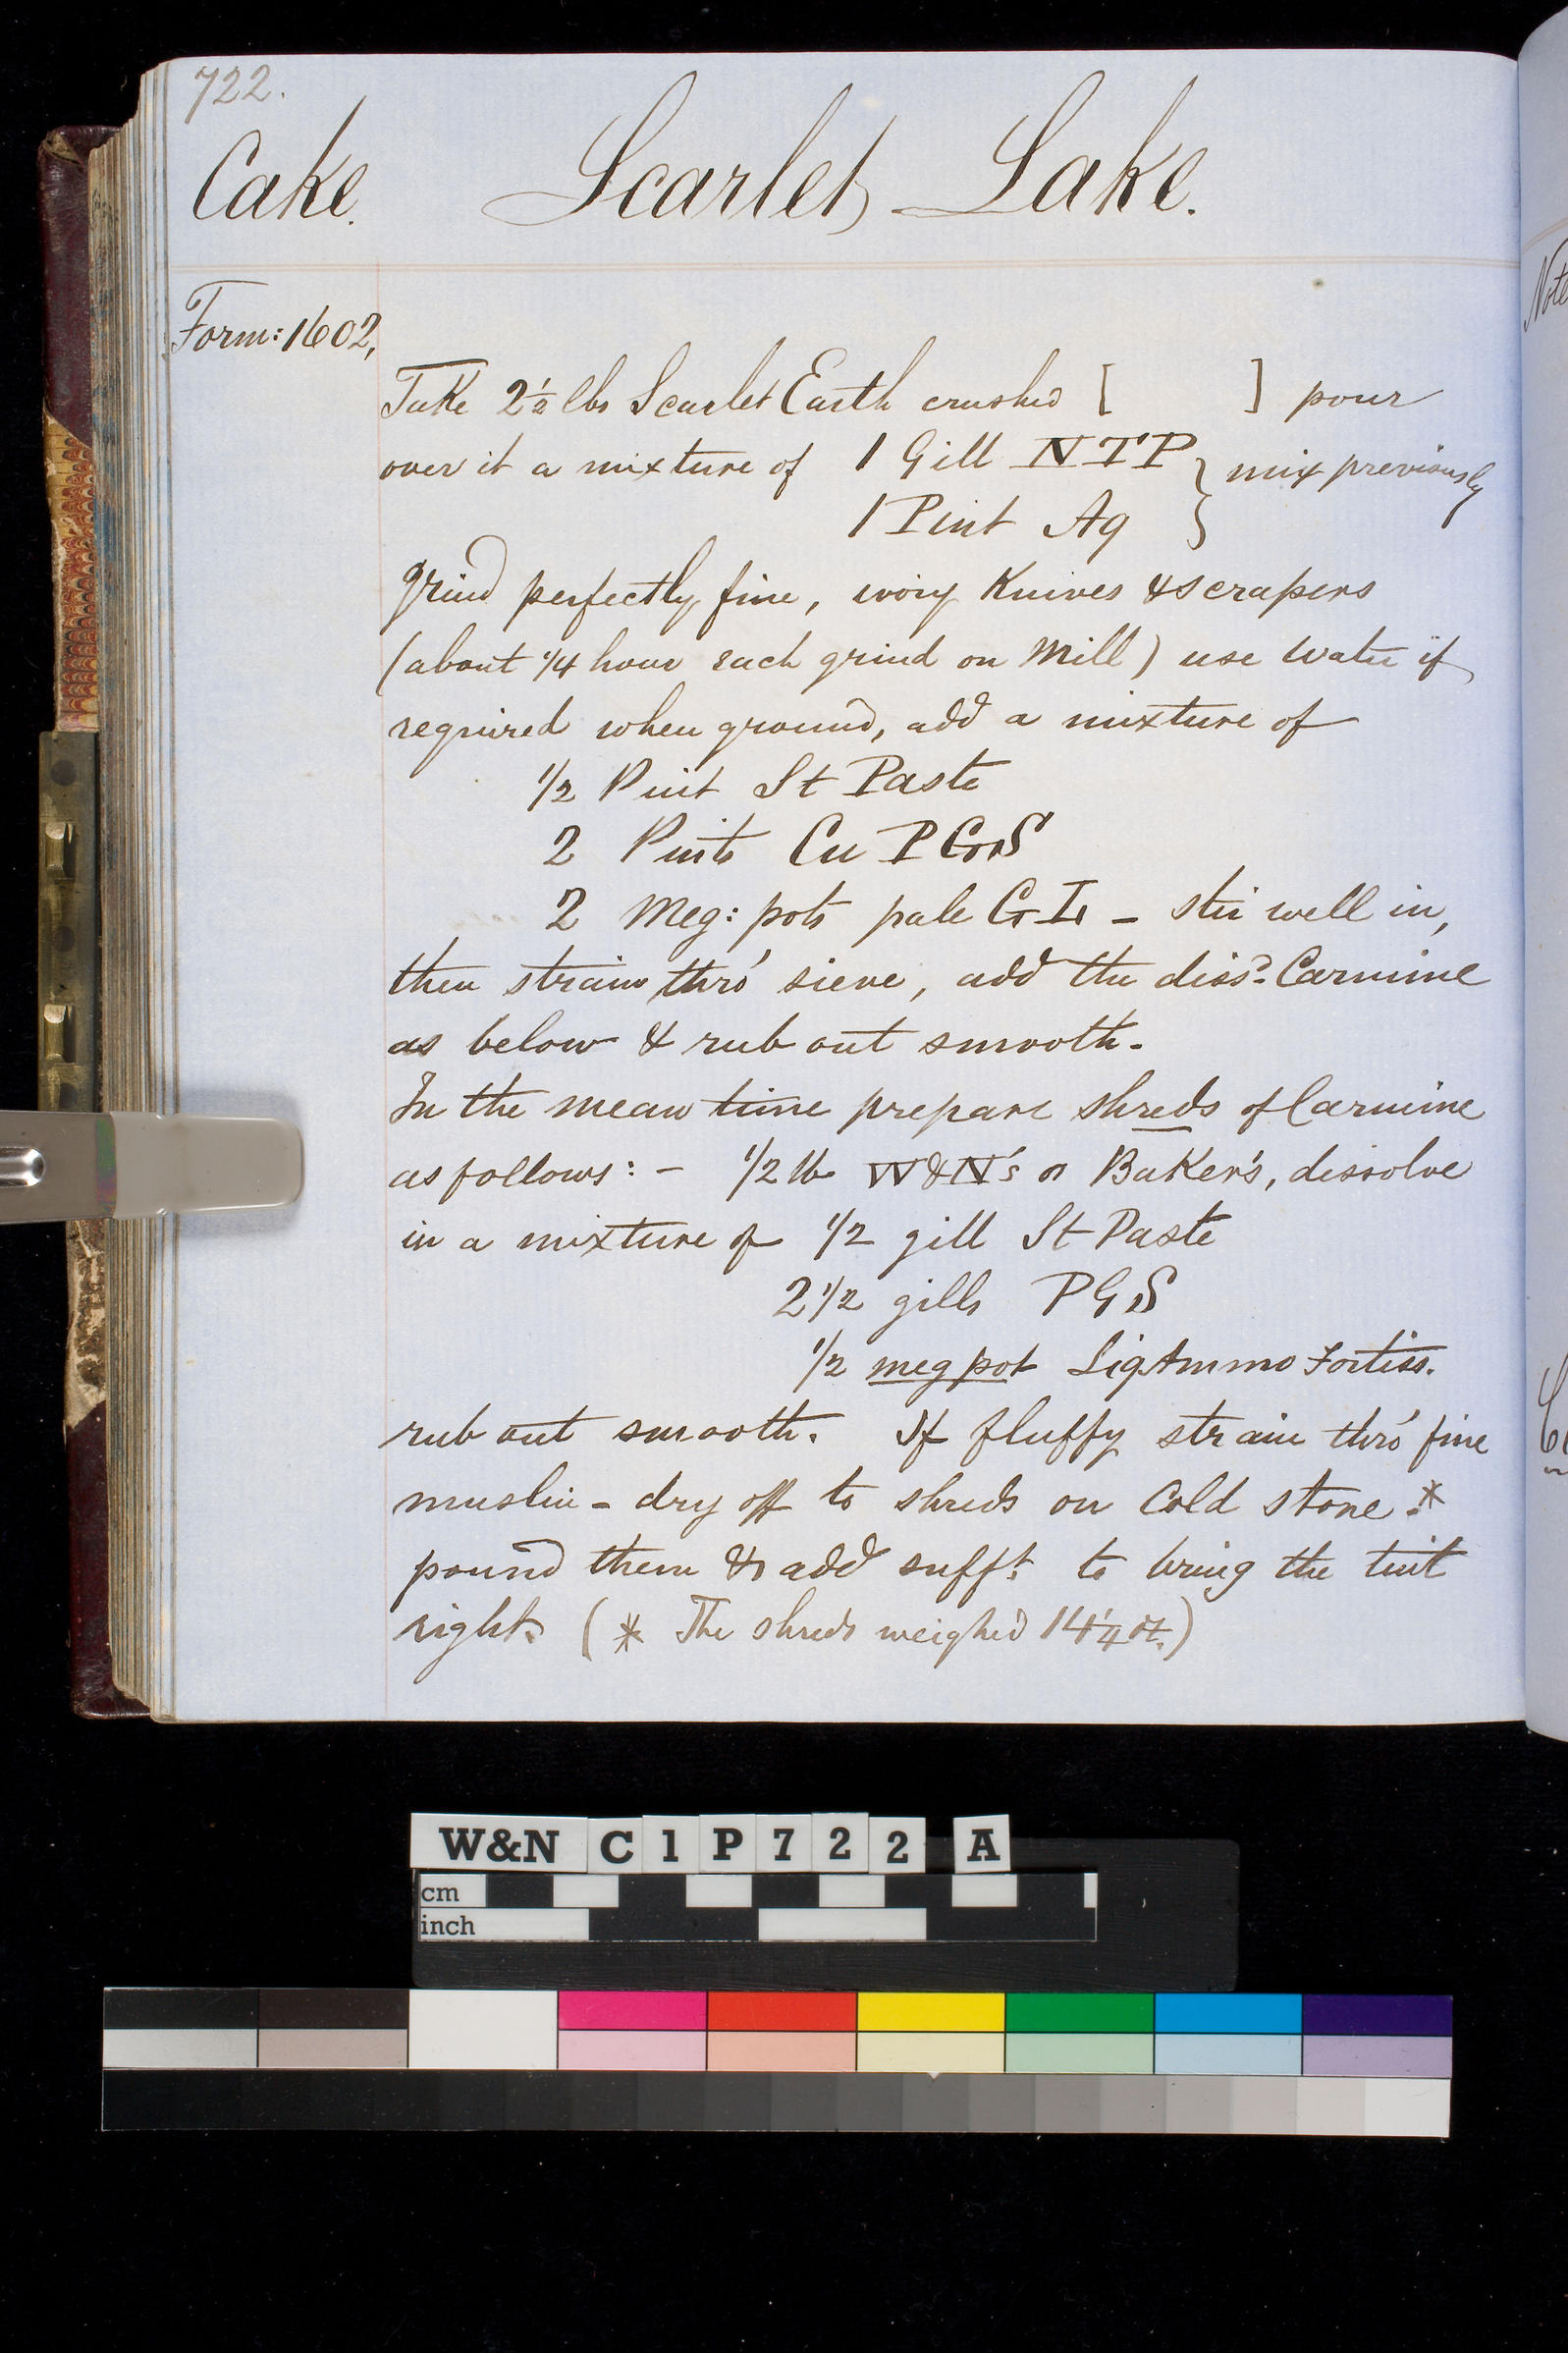 722.
Cake. Scarlet Lake.
Form: 1602,
Take 2½ lbs Scarlet Earth crushed [ ] pour
over it a mixture of 1 Gill NTP } mix previously
1 Pint Aq
grind perfectly fine, ivory Knives & scrapers
(about ¼ hour each grind on Mill) use water if
required when ground, add a mixture of
1/2 Pint St Paste
2 Pints Cu PGS
2 Meg: pots pale GL - stir well in,
then strain thro' sieve, add the dissd. Carmine
as below & rub out smooth.
In the mean time prepare shreds of Carmine
as follows: - 1/2 lb W&N's or Baker's, dissolve
in a mixture of 1/2 gill St Paste
2 1/2 gills PGS
1/2 meg pot Liq Ammo Fortiss.
rub out smooth. If fluffy strain thro' fine
muslin - dry off to shreds on Cold stone.*
pound them & add sufft. to bring the tint
right. (* The shreds weighed 14¼ oz.)
Note
W&N C1P722 A
cm
inch